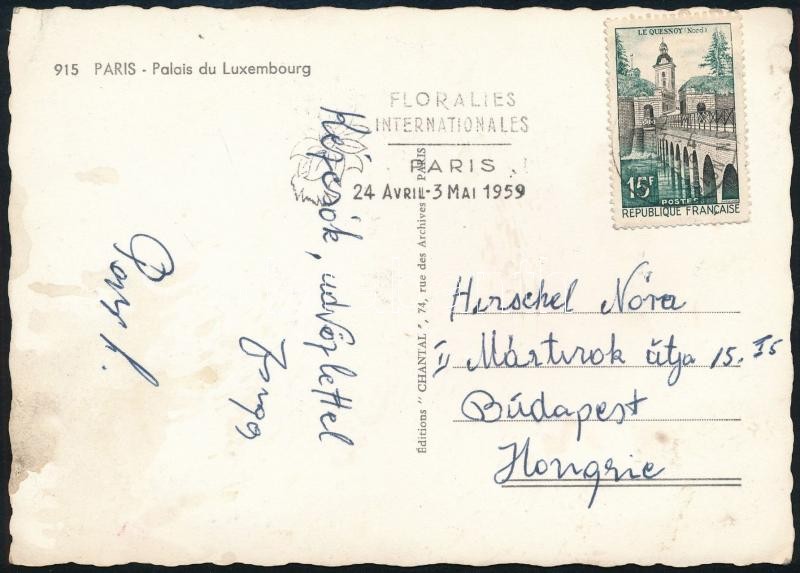 915 PARIS - Palais du Luxembourg
FLORALIES
INTERNATIONALES
PARIS
24 AVRIL-3 MAI 1959
LE QUESNOY (Nord)
15F
POSTES
RÉPUBLIQUE FRANÇAISE
Éditions "CHANTAL", 74, rue des Archives - PARIS
üdvözlettel
Herschel Nóra
II Mártirok útja 15. II
Búdapest
Hongrie